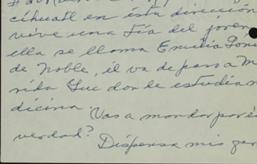 cihuatl en ésta dirección
vive una tía del jóven
ella se llama Emilia Pons
de Noble, él va de paso a M
rida Yuc donde estudia
dicina Vas a mandar por
verdad?
Dispensa mis